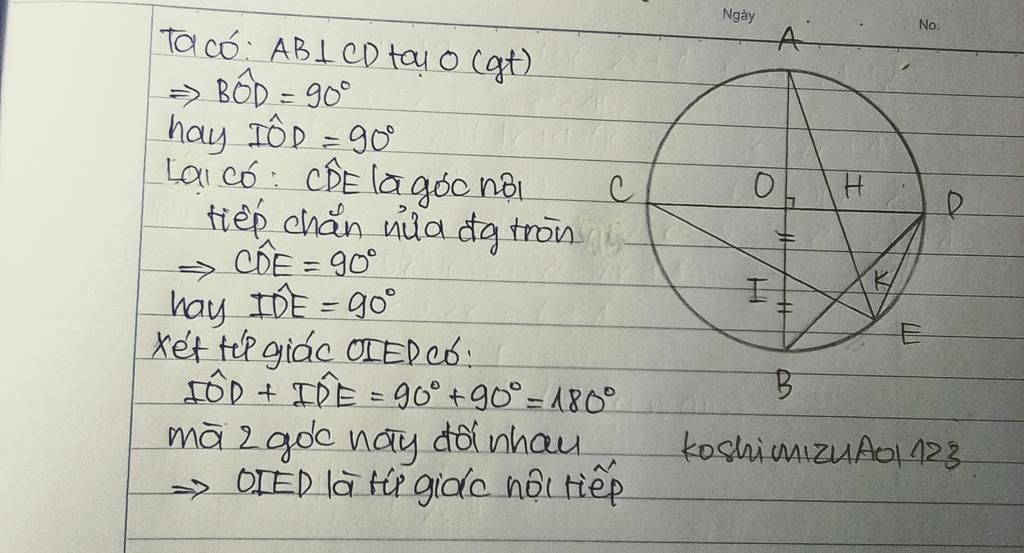 Ngày . . No.
Ta có: AB⊥CD tại O (gt)
⇒ BÔD = 90°
hay IÔD = 90°
Lại có: CD̂E là góc nội
tiếp chắn nửa đg tròn
⇒ CD̂E = 90°
hay ID̂E = 90°
Xét tứ giác OIED có:
IÔD + ID̂E = 90° + 90° = 180°
mà 2 góc này đối nhau
⇒ OIED là tứ giác nội tiếp
A
C
O
H
D
I
K
E
B
koshimizuAoi123